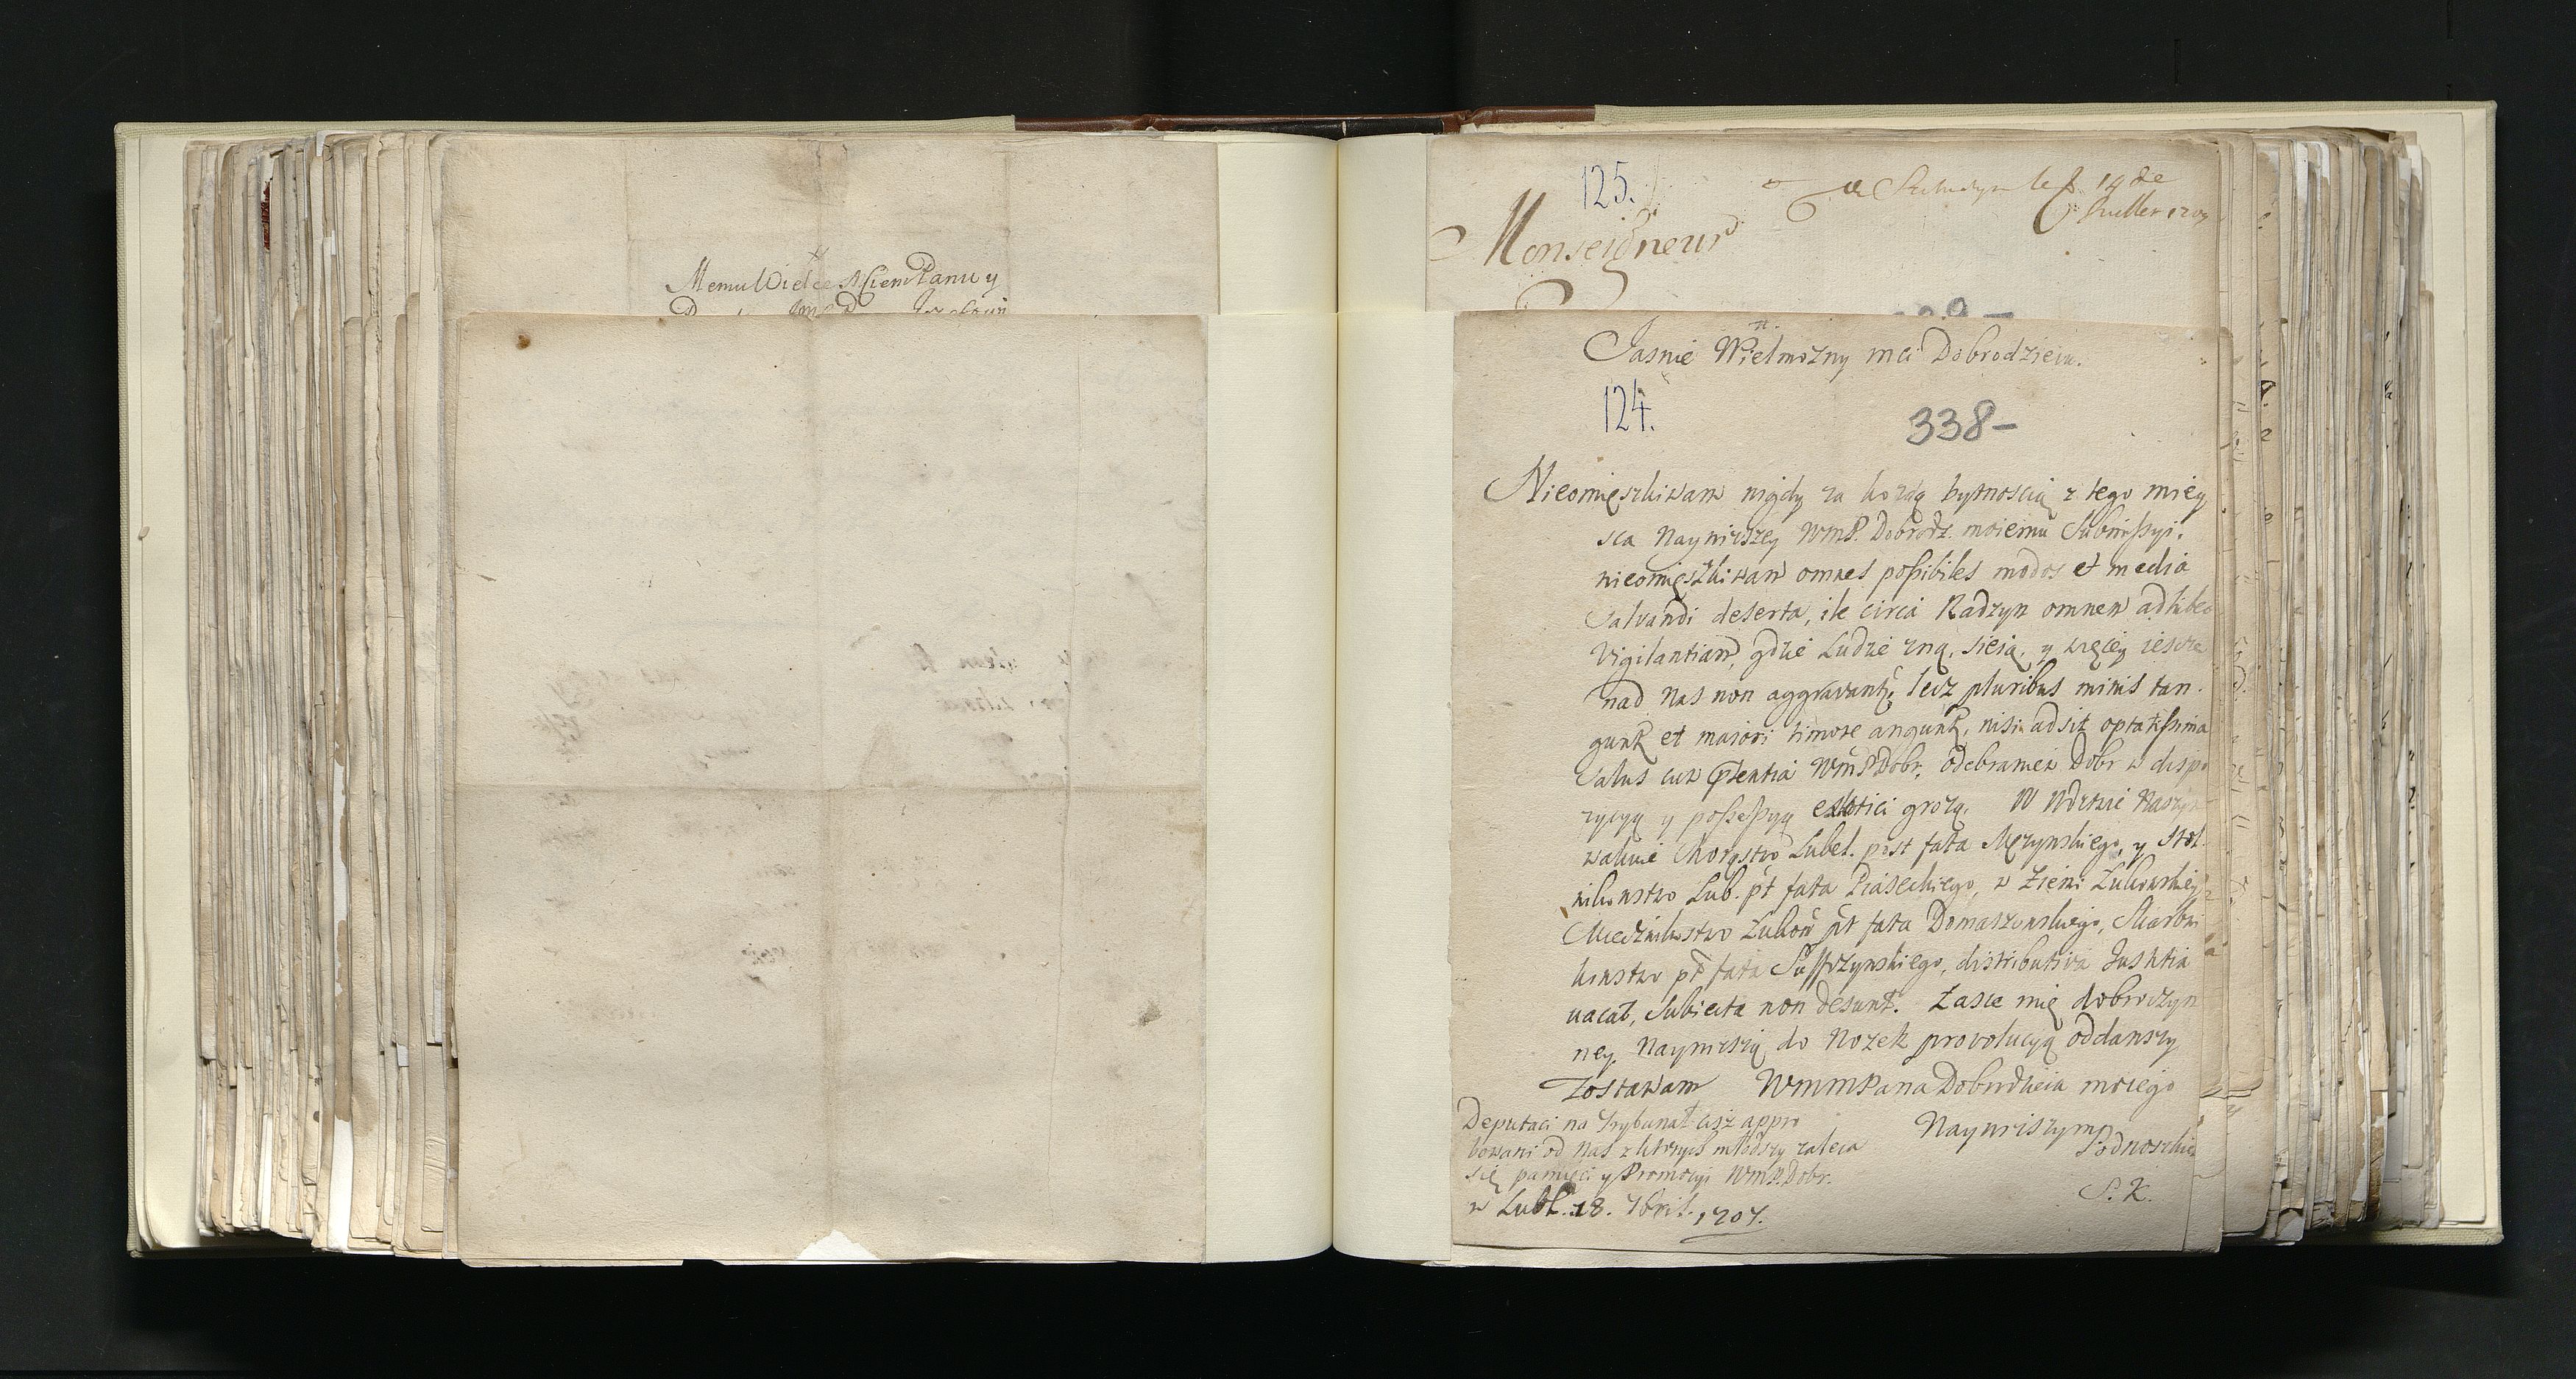 Memu Wielce Mſciem Panu y
125.
14 de
Juillet 1707
Monseigneur
Jasnie Wielmozny mci Dobrodzieiu.
124.
338-
Nieomięszkiwam nigdy za kozdą bytnoscią z tego miey
sca Nayniszzey WmP. Dobrodz. moiemu Submiſsyi.
nieomięszkiwam omnes poſsibiles modos et media
Salvandi deserta, ile circa Radzyn omnem adhibeo
Vigilantiam, gdzie Ludzie zną, sieią, y więcey ieszcze
nad Nas non aggravant, lecz pluribus minis tan
gunt et maiori timore angunt, nisi adsit optatiſsima
Salus cum WmPDobr. odebraniem Dobr w dispo
zycyą y poſseſsyą grozą. W Wdztwie Naszym
wakuie Chorąstwo Lubel. post fata Męzynskiego, y Stol
nikowstwo Lub. pt fata Piaseckiego, w Ziemi Łukowskiey
Miecznikostwo Łukow pt fata Domaszewskiego, Skarbni
kowstwo pt fata distributiva Justitia
vacat, Subiecta non desunt. Łasce mię dobroczyn
ney Nayniszą do Nozek provolucyą oddawszy
Zostawam WmmPana Dobrodzieia moiego
Nayniszym
Podnoszkie
S. K.
Deputaci na Trybunał cisz appro
bowani od Nas z ktorych młodszy zaleca
się pamięci y Promocyi WmP. Dobr.
w Lubl. 18. 7bris. 1707.